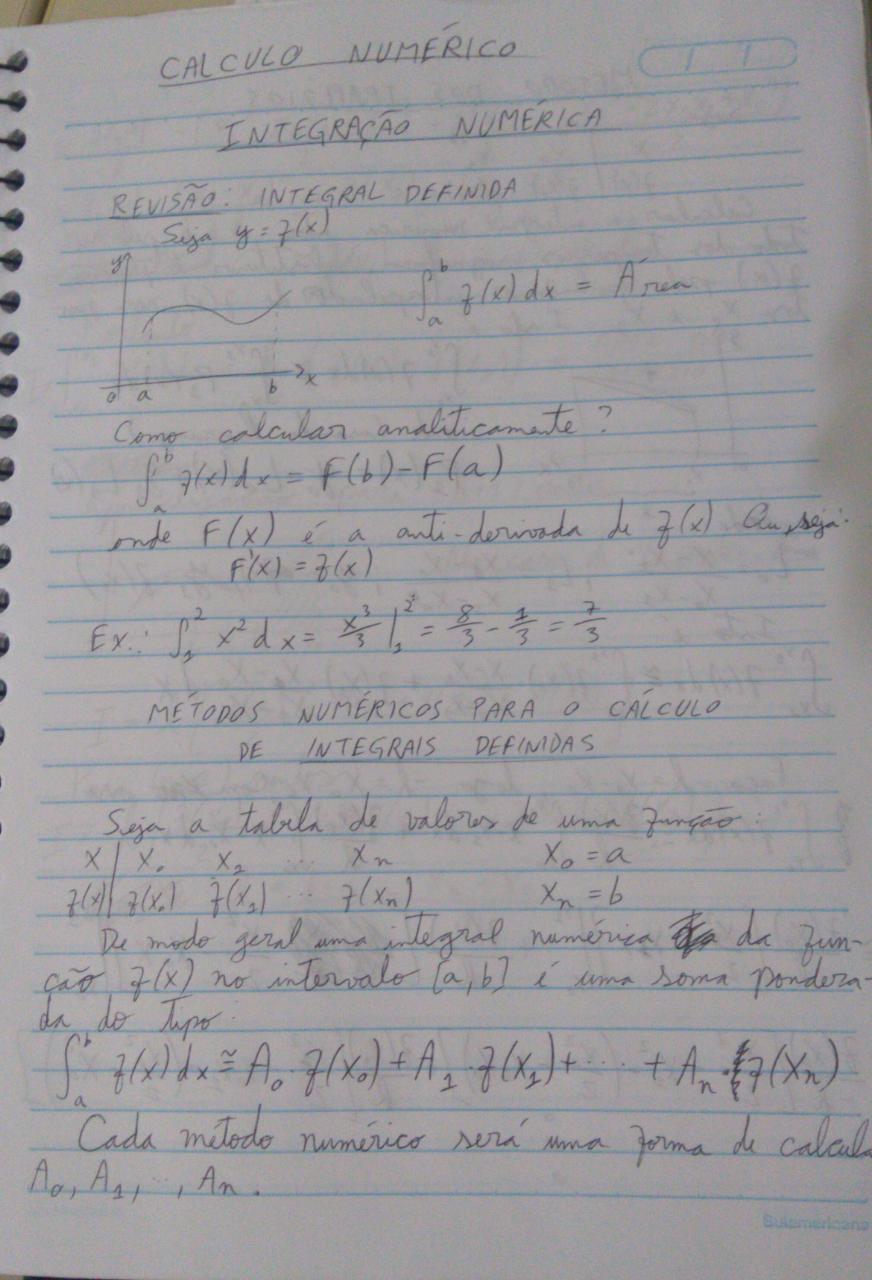 CALCULO NUMÉRICO
INTEGRAÇÃO NUMÉRICA
REVISÃO: INTEGRAL DEFINIDA
Seja y = f(x)
y
∫_a^b f(x) dx = Área
0 a b x
Como calcular analiticamente?
∫_a^b f(x) dx = F(b) - F(a)
onde F(x) é a anti-derivada de f(x) Ou, seja:
F'(x) = f(x)
Ex.: ∫_1^2 x² dx = x³/3 |_1^2 = 8/3 - 1/3 = 7/3
MÉTODOS NUMÉRICOS PARA O CÁLCULO
DE INTEGRAIS DEFINIDAS
Seja a tabela de valores de uma função:
X | X₀ X₁ ... Xn X₀ = a
f(x) | f(X₀) f(X₁) ... f(Xn) Xn = b
De modo geral uma integral numérica da fun-
ção f(x) no intervalo [a,b] é uma soma pondera-
da do tipo:
∫_a^b f(x) dx ≅ A₀ · f(X₀) + A₁ · f(X₁) + ... + An · f(Xn)
Cada método numérico será uma forma de calcula
A₀, A₁, ..., An.
Sulamericana